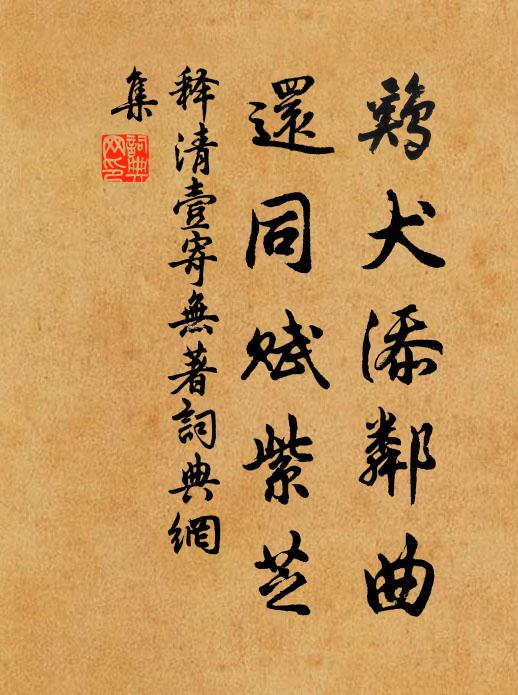 鷄犬添鄰曲
還同賦紫芝
释清壹寄無著詞典網
集
詞典网印